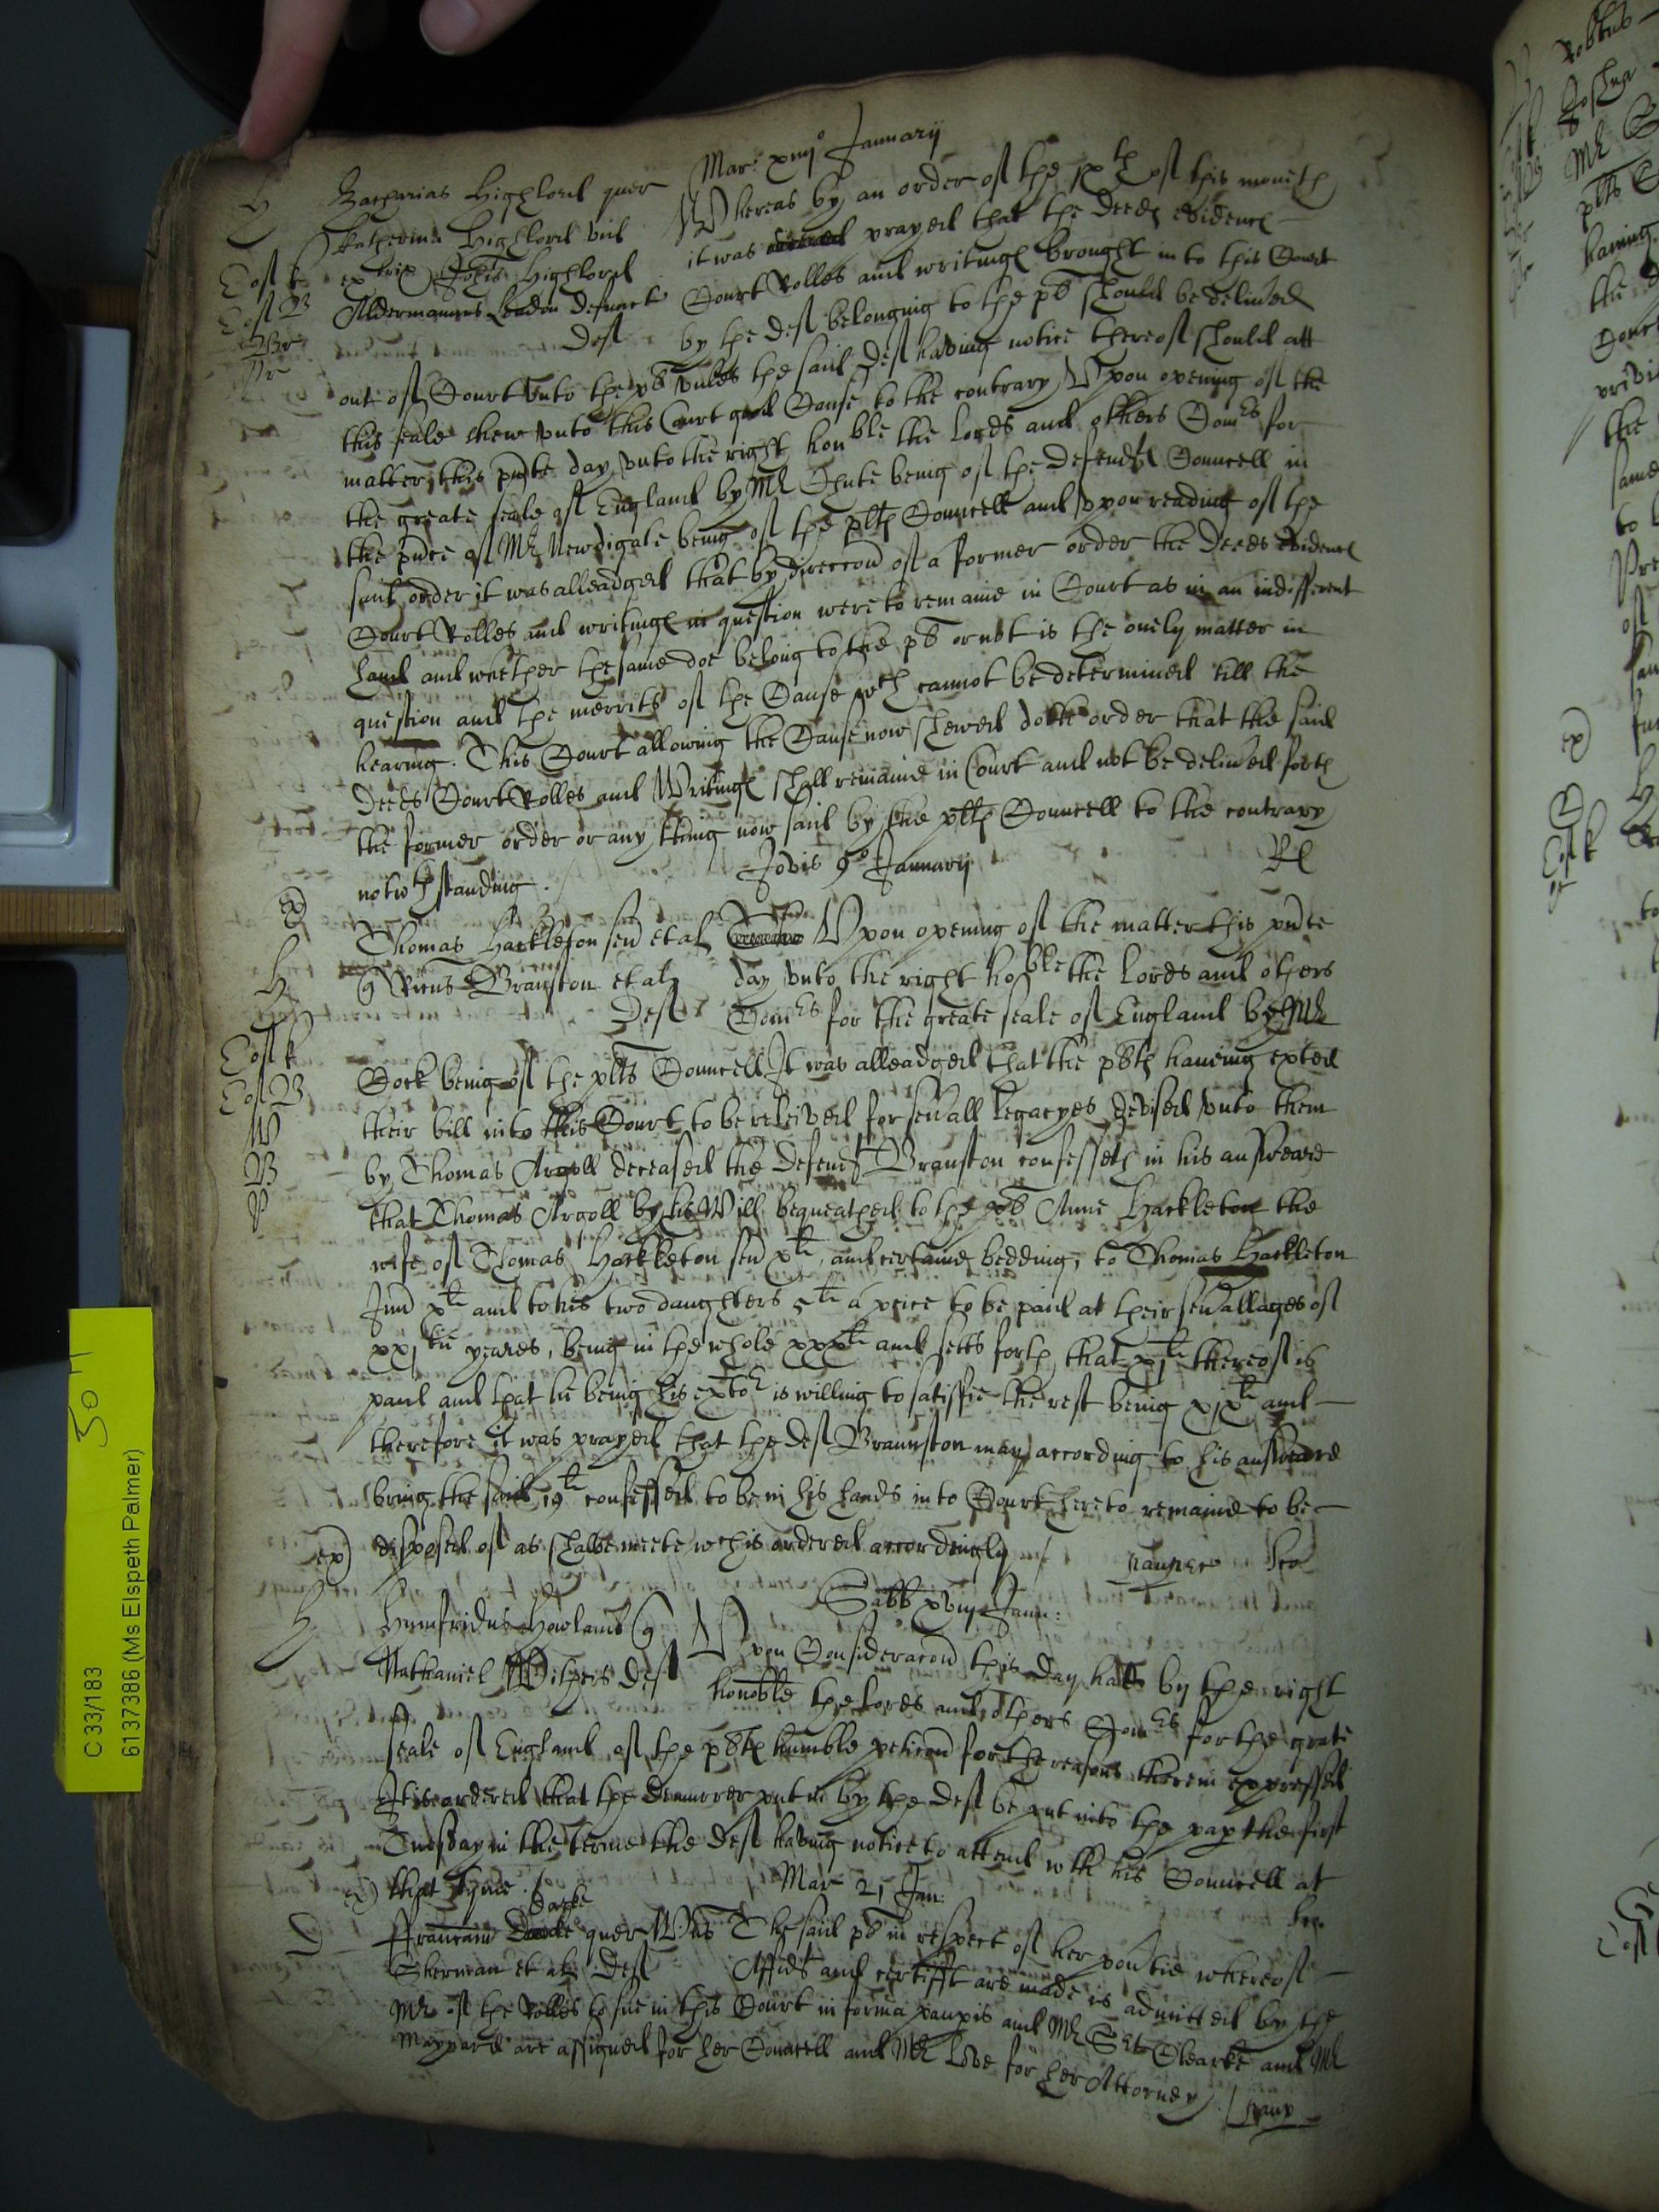 Mar: xiiij° January
H Zacharias Highlord quer
Katherina Highlord vid
extrix Johis Highlord
Aldermannus London defunct
Def
Whereas by an order of the ixth of this moneth
it was prayed that the Deedes evidences
Court Rolles and writinges brought in to this Court
by the def belonging to the plt should be delivred
out of Court vnto the plt vnles the said def having notice thereof should att
this seale shew vnto this Court good Cause to the contrary Vpon opening of the
matter this pnte day vnto the right honble the Lords and others Comrs for
the greate seale of England by Mr Chute being of the defendtes Councell in
the pnce of Mr Newdigate being of the pltes Councell and vpon reading of the
said order it was alleadged that by direccon of a former order the Deeds evidences
Court Rolles and writinges in question were to remaine in Court as in an indifferent
hand and whether the same doe belong to the plt or not is the onely matter in
question and the merrits of the Cause wch cannot be determined till the
hearing. This Court allowing the Cause now shewed doth order that the said
Deeds Court Rolles and Writinges shall remaine in Court and not be delivred forth
the former order or any thing now said by the pltes Councell to the contrary
notwthstanding.
Jovis 9° January
H Thomas Hackleton sen et al
Branston et al
Def
Vpon opening of the matter this pnte
day vnto the right hoble the Lords and others
Comrs for the greate seale of England by Mr
Cock being of the plts Councell It was alleadged that the pltes haveing exted
their bill into this Court to be releived for sevall Legacyes devised vnto them
by Thomas Argoll deceased the Defendt Branston confesseth in his answeare
that Thomas Argoll by his Will bequeathed to the plt Anne Hackleton the
wife of Thomas Hackleton sen xli and certaine bedding, to Thomas Hackleton
Jun xli and to his two daughters 5li a peice to be paid at their sevall ages of
xxitie yeares, being in the whole xxxli and setts forth that xjli thereof is
paid and that he being his extor is willing to satisfie the rest being xixli and
therefore it was prayed that the def Braunston may according to his answeare
bring the said 19li confessed to be in his hands into Court here to remaine to be
disposed of as shalbe meete wch is ordered accordingly
Sabb xviij Janu:
H Humfridus Howland q
Nathaniel Withers Def
Vpon Consideracon this day hadd by the right
honoble the Lords and others Comrs for the grate
seale of England of the pltes humble peticon for the reasons therein expressed
It is ordered that the demurrer put in by the def be put into the pap the first
Tuesday in the terme the def having notice to attend wth his Councell at
that tyme.
Mar 21 Jan:
D Darke
ffrancam quer
Sherman et al Def
Whs The said plt in respect of her povtie whereof
Affidt and certifft are made is admitted by the
Mr of the Rolles to sue in this Court in forma paupis and Mr Sert Clearke and Mr
Maynard are assigned for her Councell and Mr Love for her Attorney
paup
C 33/183
6137386 (Ms Elspeth Palmer)